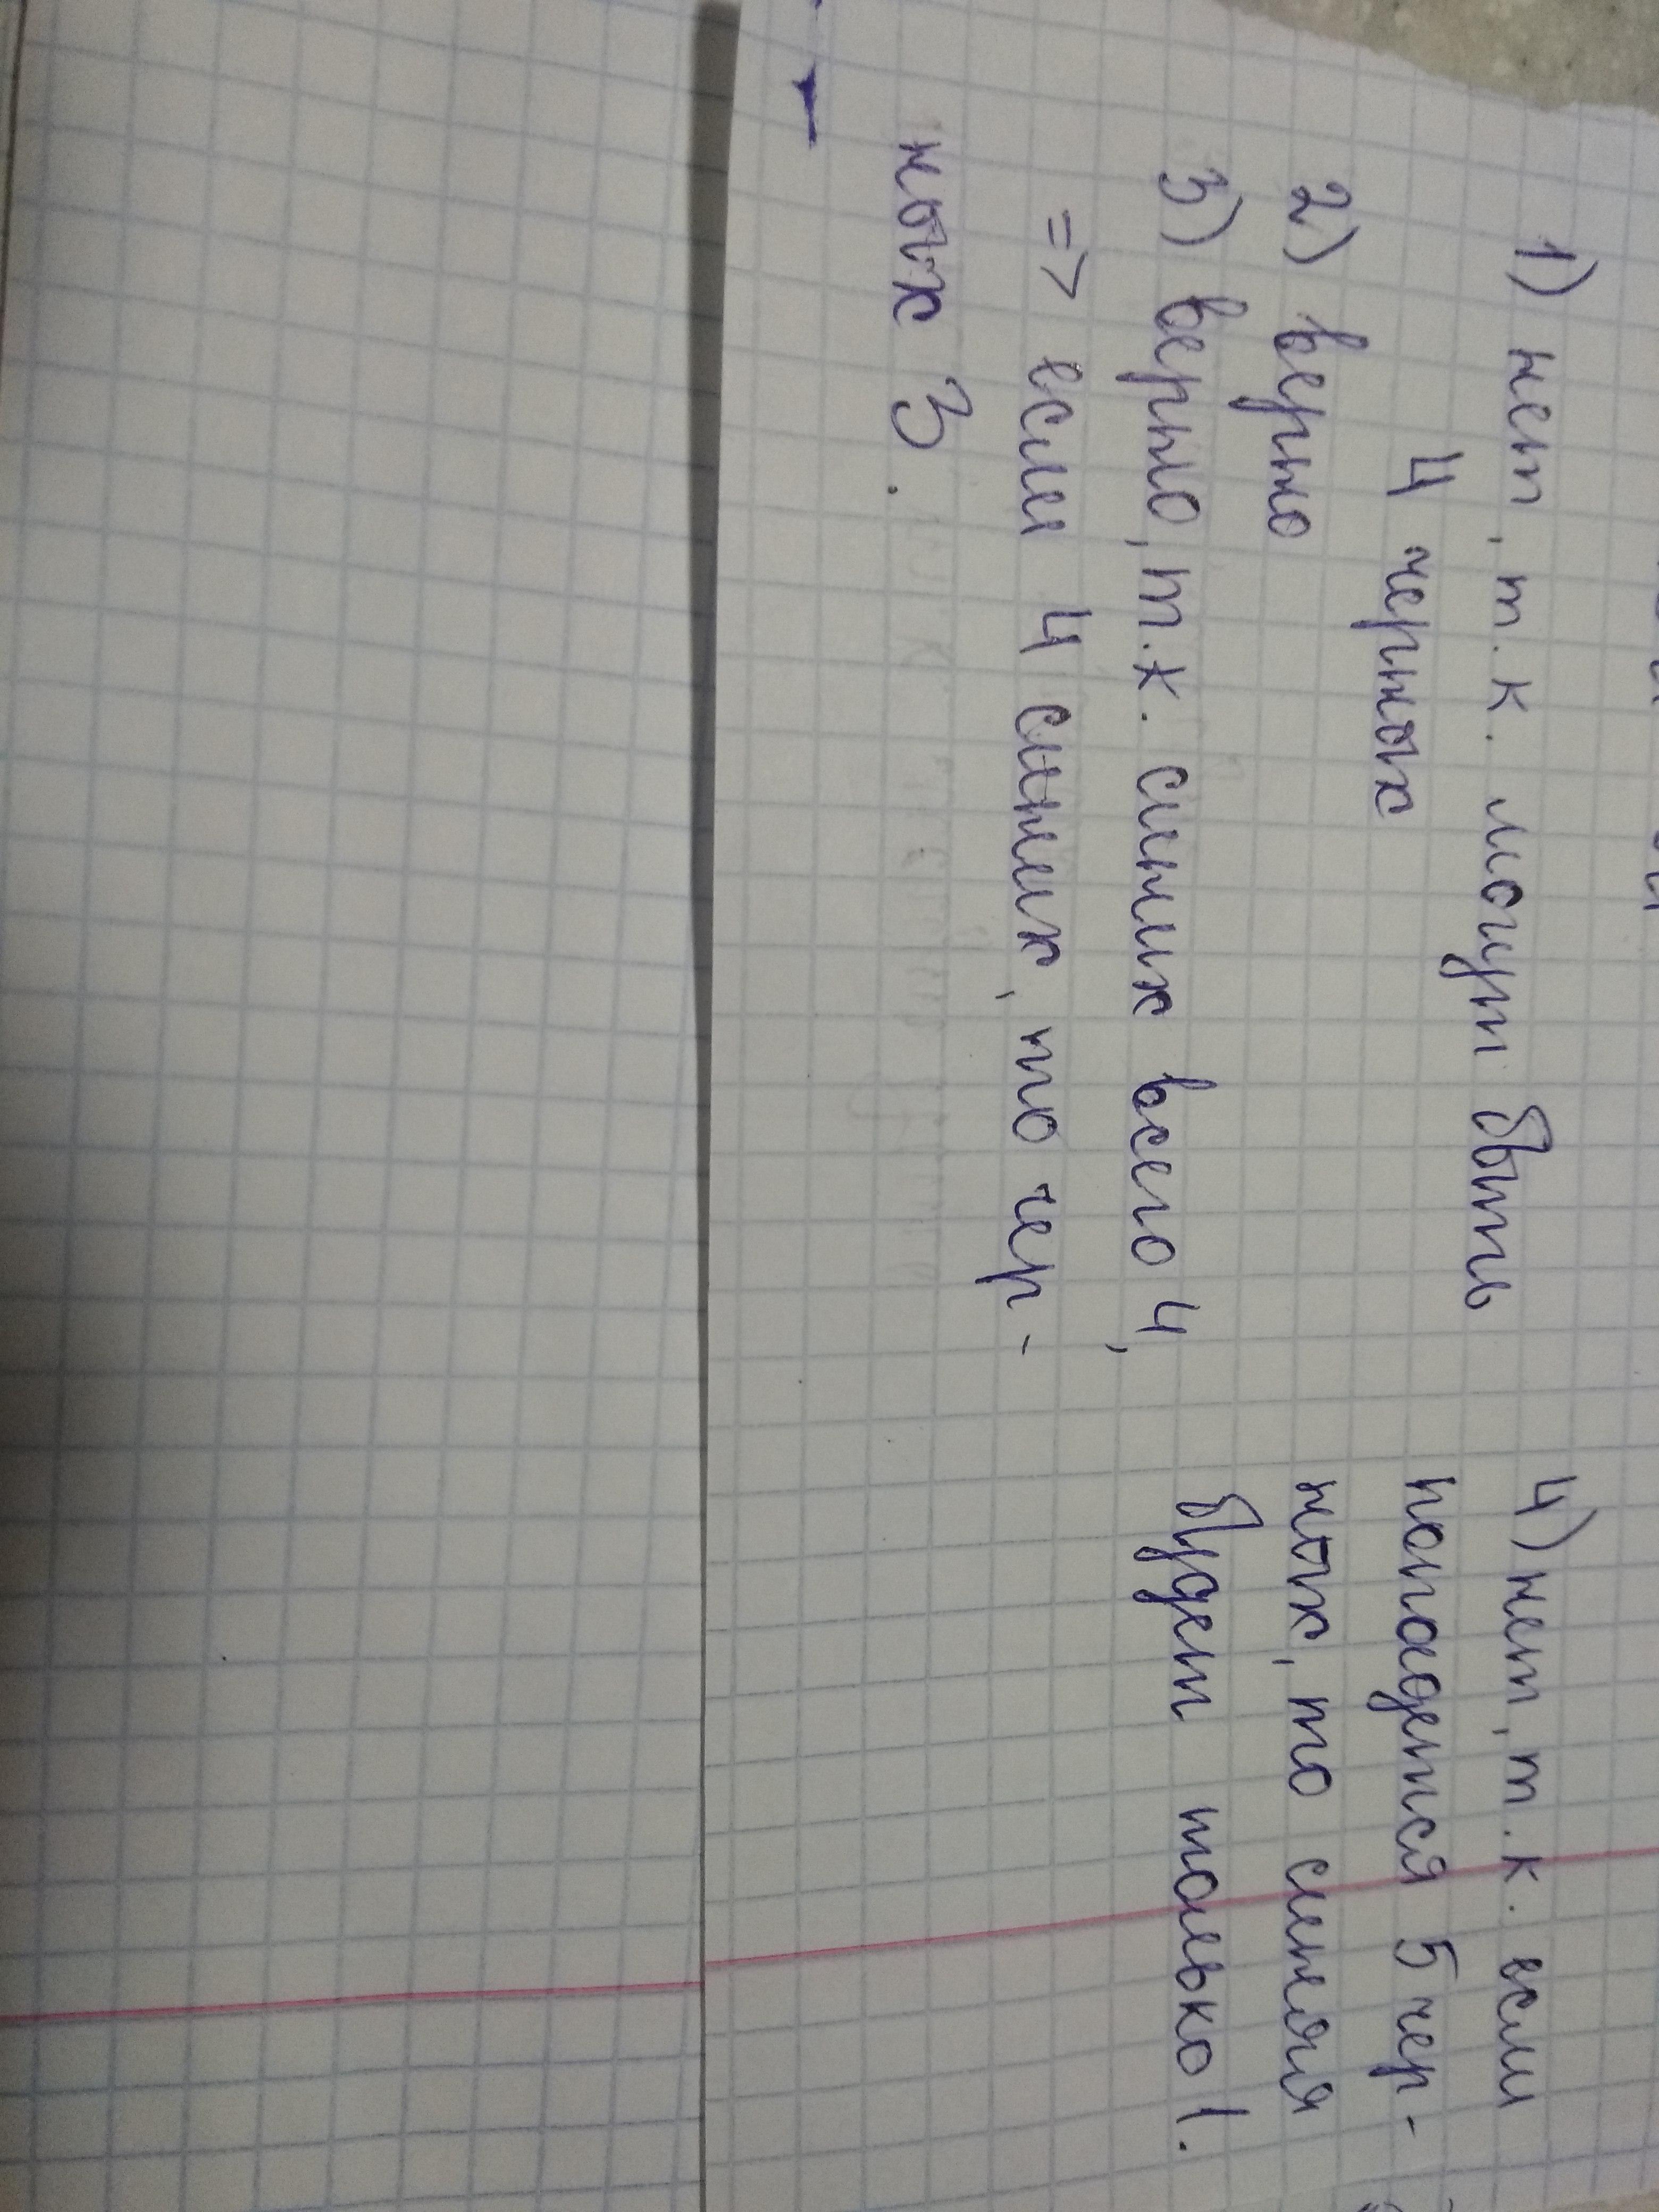 1) нет, т.к. могут быть
4 черных
2) верно
3) верно, т.к. синих всего 4,
=> если 4 синих, то чер-
ных 3.
4) нет, т.к. если
попадется 5 чер-
ных, то синяя
будет только 1.